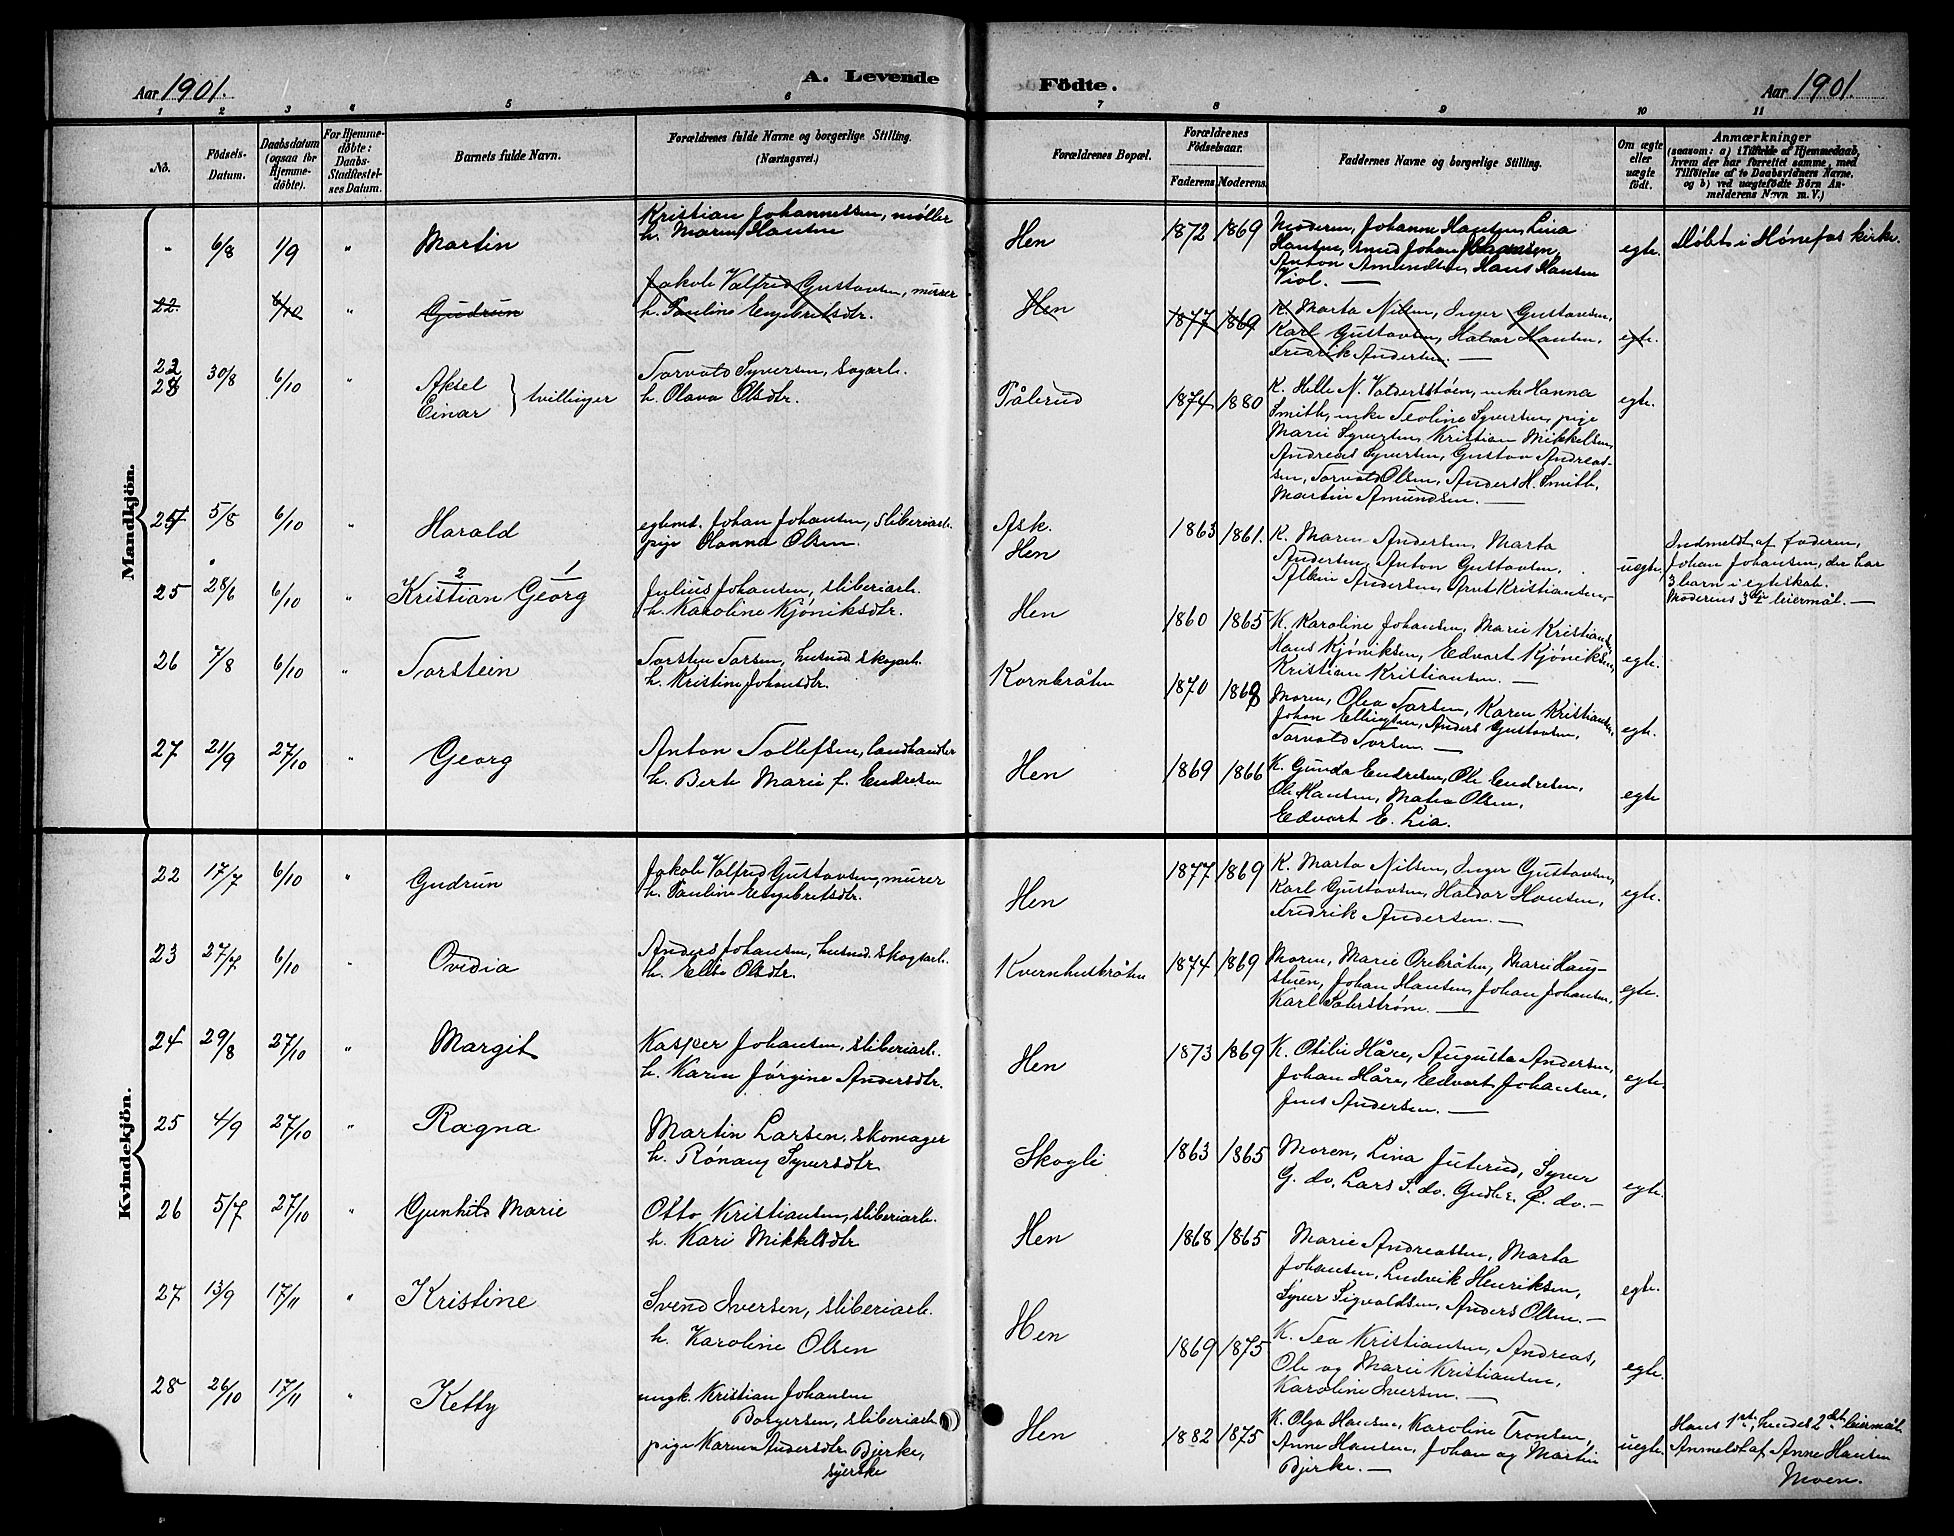 Aar 1901. A. Levende Födte. Aar 1901.
1 2 3 4 5 6 7 8 9 10 11
No.
Födsels-Datum.
Daabsdatum (ogsaa for Hjemme-döbte).
For Hjemme-döbte: Daabs-Stadfæstel-ses Datum.
Barnets fulde Navn.
Forældrenes fulde Navne og borgerlige Stilling. (Næringsvei.)
Forældrenes Bopæl.
Forældrenes Födselsaar.
Faderens. Moderens.
Faddernes Navne og borgerlige Stilling.
Om ægte eller uægte födt.
Anmærkninger
(saasom: a) i Tilfælde af Hjemmedaab,
hvem der har forrettet samme, med
Tilföielse af to Daabsvidners Navne,
og b) ved uægtefödte Börn An-
melderens Navn m. V.)
Mandkjön.
" 6/8 1/9 " Martin
Kristian Johannessen, møller
h. Maren Hansen
Hen 1872 1869
Moderen, Johanne Hansen, Lina
Hansen, smed Johan Hansen,
Anton Amundsen, Hans Hansen
Viol. —
egte. Døbt i Hønefos kirke.
22. 6/10 " Gudrun
Jakob Valfred Gustavsen, murer
h. Pauline Engebretsdtr.
Hen 1877 1869
K. Marta Nilsen, Inger Gustavsen,
Karl Gustavsen, Haldor Hansen,
Fredrik Andersen. —
egte.
22
23 30/8 6/10 " Aksel
Einar } tvillinger
Torvald Syversen, sagarb.
h. Olava Olsdtr.
Pålerud 1874 1880
K. Helle N. Valdersstøen, enke Hanna
Smith, enke Teoline Syversen, pige
Marie Syversen, Kristian Mikkelsen,
Andreas Syversen, Gustav Andreas-
sen, Torvald Olsen, Anders H. Smith,
Martin Amundsen. —
egte.
24 5/8 6/10 " Harald
egtemd. Johan Johansen, sliberiarb.
pige Hanna Olsen.
Ask.
Hen 1863 1861.
K. Maren Andersen, Marta
Andersen, Anton Gustavsen,
Albin Andersen, Arnt Kristiansen, —
uegte,
Indmeldt af faderen,
Johan Johansen, der har
3 barn i egteskab.
Moderens 3die leiermål. —
25 28/6 6/10 " Kristian 2 Georg 1
Julius Johansen, sliberiarb.
h. Karoline Kjøniksdtr.
Hen 1860 1865
K. Karoline Johansen, Marie Kristians.
Hans Kjøniksen, Edvart Kjøniksen,
Kristian Kristiansen. —
egte.
26 7/8 6/10 " Torstein
Torsten Torsen, husmd. skogarb.
h. Kristine Johansdtr.
Kornbråten 1870 1868
Moren, Olea Torsen, Karen Kristiansen,
Johan Ellingsen, Anders Gustavsen,
Torvald Torsen. —
egte.
27 21/9 27/10 " Georg
Anton Tollefsen, landhandler
h. Berte Marie f. Endresen
Hen 1869 1866
K. Gunda Endresen, Ole Endresen,
Ole Hansen, Matea Olsen,
Edvart E. Lia.
egte
Kvindekjön.
22 17/7 6/10 " Gudrun
Jakob Valfred Gustavsen, murer
h. Pauline Engebretsdtr.
Hen 1877 1869
K. Marta Nilsen, Inger Gustavsen,
Karl Gustavsen, Haldor Hansen,
Fredrik Andersen. —
egte.
23 27/7 6/10 " Ovidia
Anders Johansen, husmd. skogsarb.
h. Else Olsdtr.
Kvernhusbråten 1874 1869
Moren, Marie Orebråten, Marie Haug-
stuen, Johan Hansen, Johan Johansen,
Karl Salerstrøm. —
egte.
24 29/8 27/10 " Margit
Kasper Johansen, sliberiarb.
h. Karen Jørgine Andersdtr.
Hen 1873 1869
K. Otilie Håre, Augusta Andersen,
Johan Håre, Edvart Johansen,
Jens Andersen. —
egte
25 4/9 27/10 " Ragna
Martin Larsen, skomager
h. Rønaug Syversdtr.
Skogli 1863 1865
Moren, Lina Juterud, Syver
G. do, Lars S. do. Gudbr. Ø. do. —
egte.
26 5/7 27/10 " Gunhild Marie
Otto Kristiansen, sliberiarb.
h. Kari Mikkelsdtr
Hen 1868 1865
Marie Andreassen, Marta
Johansen, Ludvik Henriksen,
Syver Sigvaldsen, Anders Olsen. —
egte.
27 13/9 17/11 " Kristine
Svend Iversen, sliberiarb.
h. Karoline Olsen
Hen 1869 1875
K. Tea Kristiansen, Andreas,
Ole og Marie Kristiansen,
Karoline Iversen. —
egte.
28 26/10 17/11 " Ketty
ungk. Kristian Johansen
Borgersen, sliberiarb.
pige Karen Andersdtr. Bjerke,
syerske
Hen 1882 1875
K. Olga Hansen, Karoline Tronsen,
Anne Hansen, Johan og Martin
Bjerke. —
uegte.
Hans 1ste, hendes 2det leiermål.
Anmeldt af Anne Hansen
Moen.